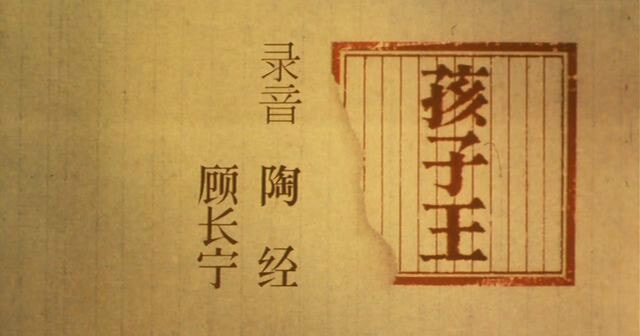 孩子王
录音 陶经
顾长宁